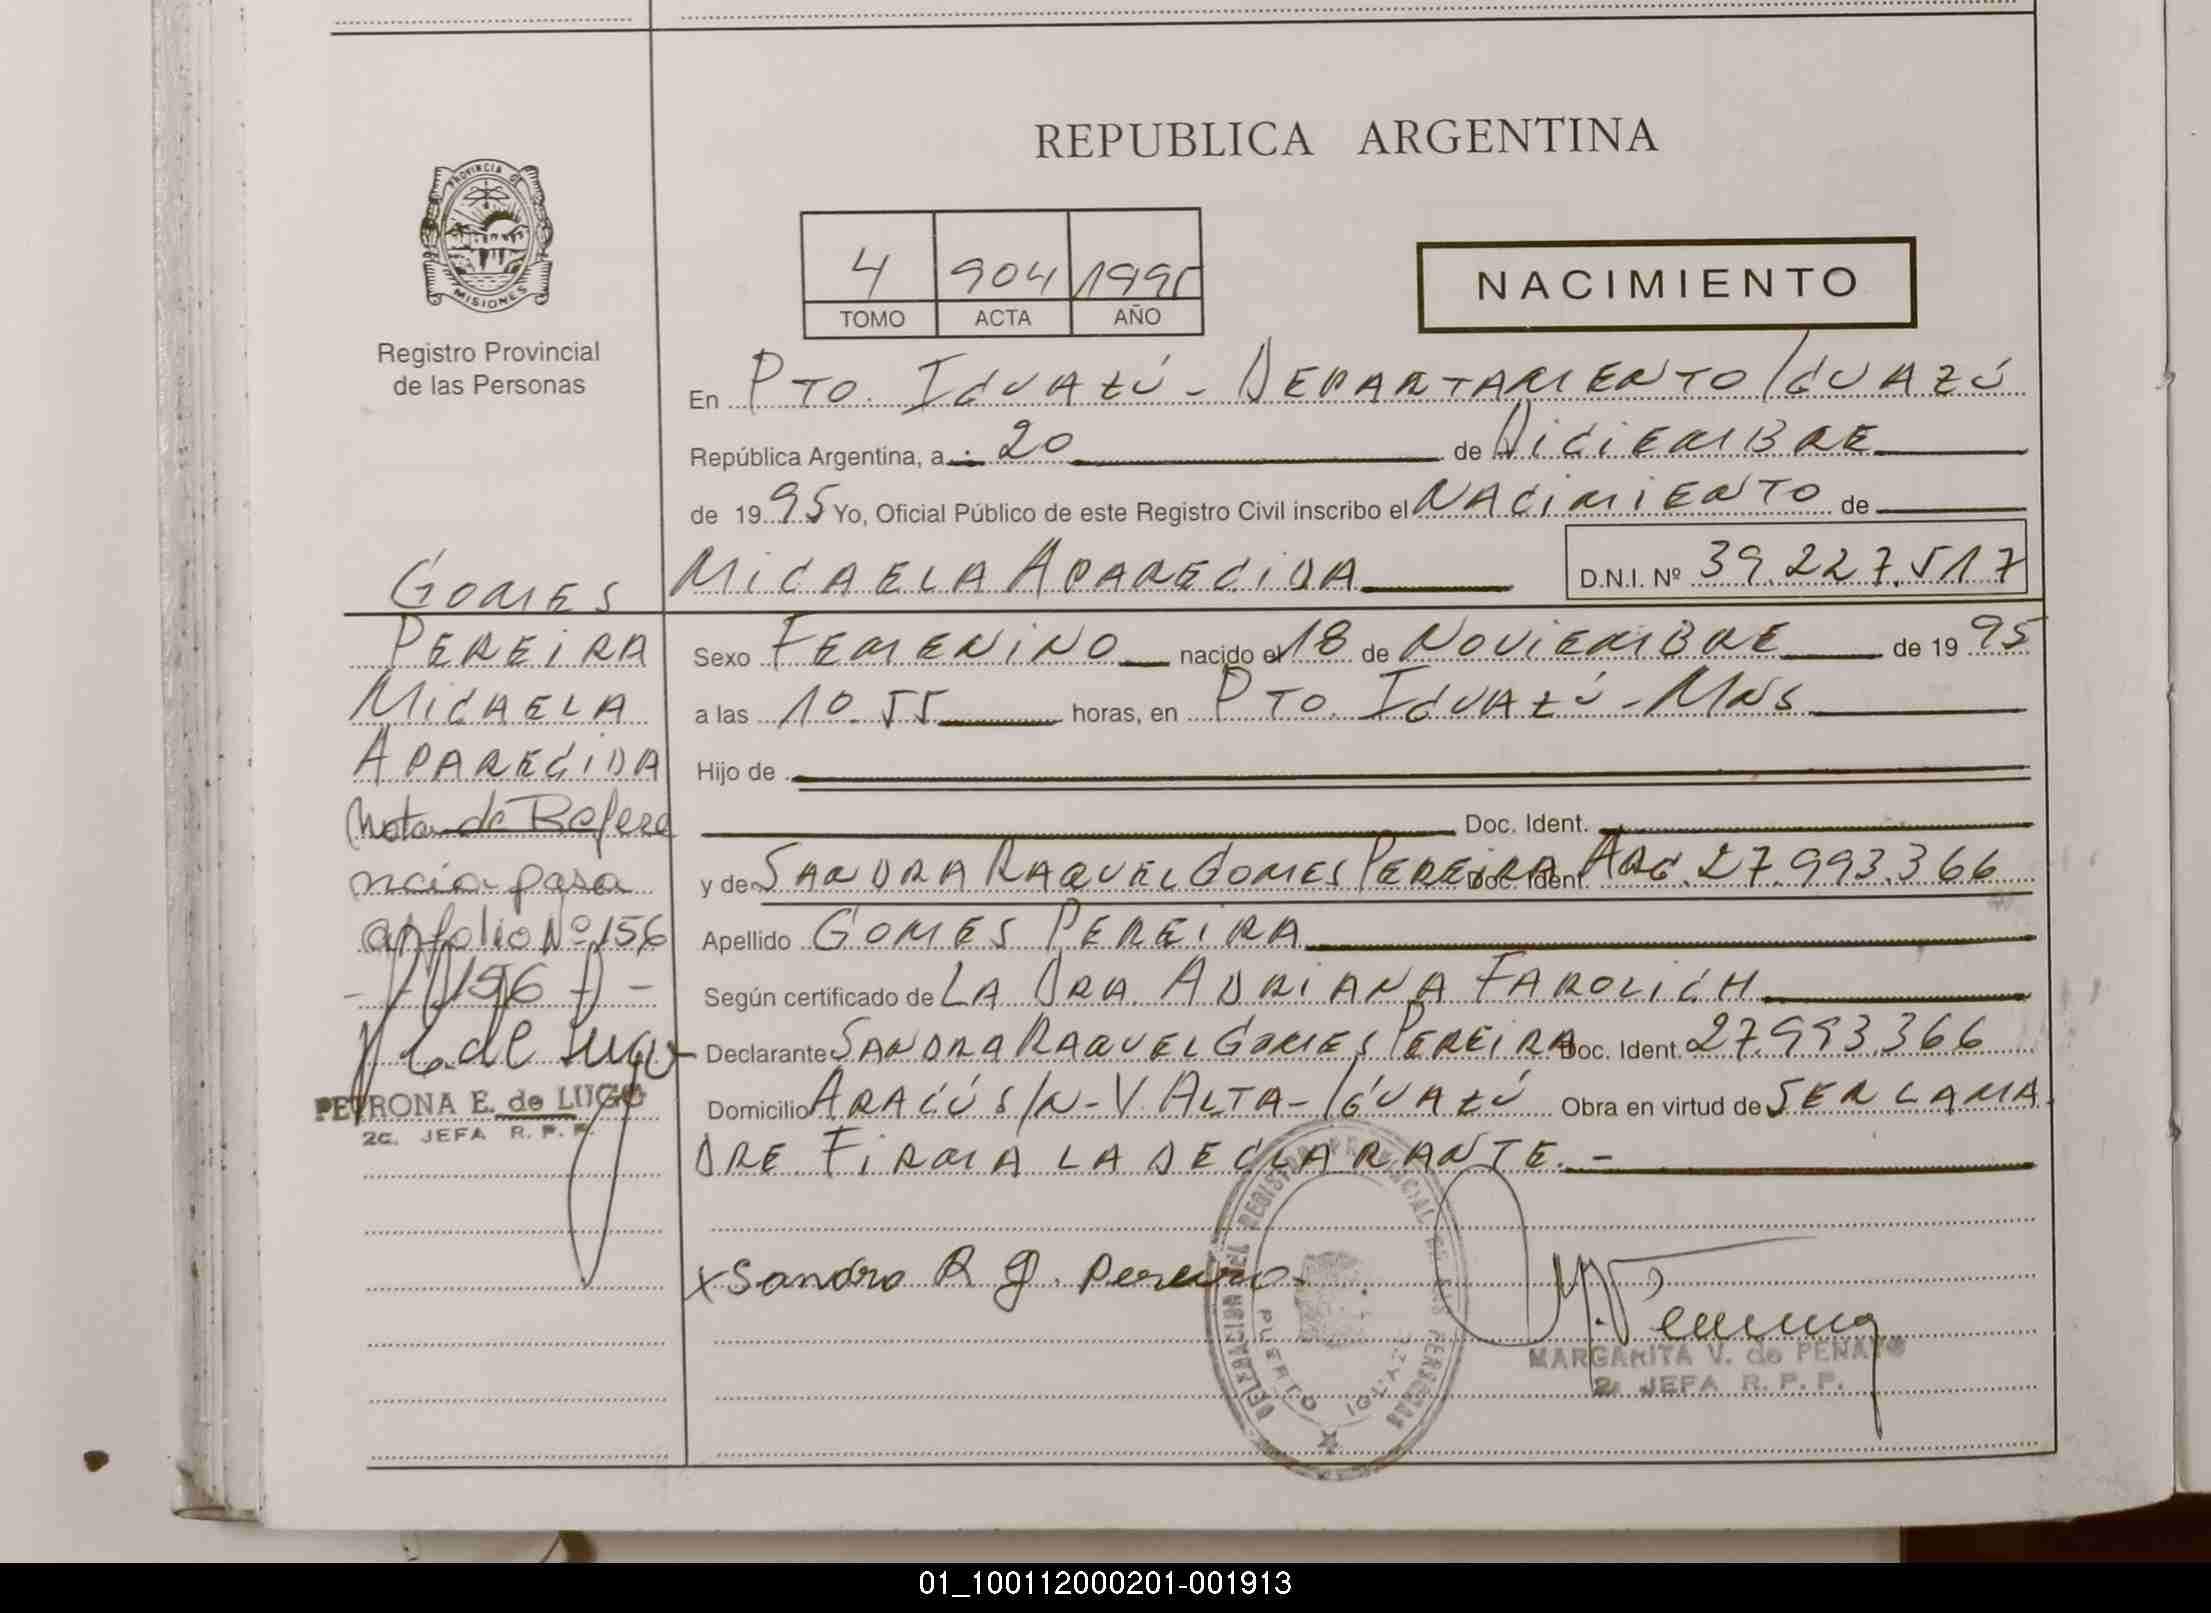 REPUBLICA ARGENTINA
PROVINCIA DE
MISIONES
Registro Provincial
de las Personas
4 904 1995
TOMO ACTA AÑO
NACIMIENTO
En PTO. IGUAZÚ - DEPARTAMENTO IGUAZÚ
República Argentina, a 20 de DICIEMBRE
de 1995 Yo, Oficial Público de este Registro Civil inscribo el NACIMIENTO de
MICAELA APARECIDA D.N.I. Nº 39.227.517
Sexo FEMENINO nacido el 18 de NOVIEMBRE de 1995
a las 10.55 horas, en PTO. IGUAZÚ - MNS
Hijo de
Doc. Ident.
y de SANDRA RAQUEL GOMES PEREIRA Doc. Ident. ARG. 27.993.366
Apellido GOMES PEREIRA
Según certificado de LA DRA. ADRIANA FAROLICH
Declarante SANDRA RAQUEL GOMES PEREIRA Doc. Ident. 27.993.366
Domicilio ARAGÚ S/N - V. ALTA - IGUAZÚ Obra en virtud de SER LA MA
DRE. FIRMA LA DECLARANTE. -
GOMES
PEREIRA
MICAELA
APARECIDA
Nota de Refere
ncia pasa
al folio Nº 156
- // 156 // -
E. de Lugo
PETRONA E. de LUGO
2a. JEFA R. P. P.
x Sandra R G. Pereira
DELEGACION DEL REGISTRO PROVINCIAL DE LAS PERSONAS
PUERTO IGUAZU
MARGARITA V. de PENAYO
2a JEFA R. P. P.
01_100112000201-001913